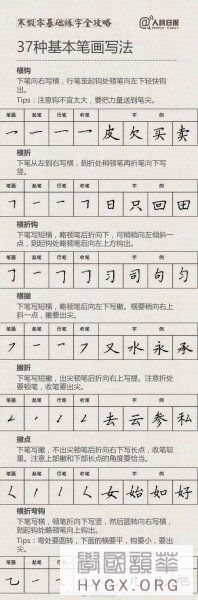 寒假零基础练字全攻略
@人民日报
PEOPLE'S DAILY
37种基本笔画写法
横钩
下笔向右写横，行笔至起钩处顿笔向左下轻快钩出。
Tips：注意钩不宜太大，要把力量送到尖。
笔画 起笔 行笔 收笔 字例
皮 欠 买 卖
横折
下笔从左到右写横，到折处稍顿笔再折笔向下写竖。
笔画 起笔 行笔 收笔 字例
日 只 回 田
横折钩
下笔写短横，略顿笔后折向下，可稍稍向左倾斜一点，到起钩处略顿笔后向左上方钩出。
笔画 起笔 行笔 收笔 字例
习 司 句 匀
横撇
下笔写短横，略顿笔后向左下写撇。横要稍向右上斜一点，撇要出尖。
笔画 起笔 行笔 收笔 字例
又 水 永 承
撇折
下笔写短撇，出尖顿笔后折向右上写提。注意折处要顿笔，收笔要出尖。
笔画 起笔 行笔 收笔 字例
去 云 参 私
撇点
下笔写撇，不出尖顿笔后折向右下写长点，收笔较重。注意上部撇和下部长点的角度要恰当。
笔画 起笔 行笔 收笔 字例
女 始 如 好
横折弯钩
下笔写横，顿笔折向下写竖，然后圆转向右写横，到起钩处向上钩出。
Tips：弯处要圆转，下面的横要平，钩要小，要出尖。
笔画 起笔 行笔 收笔 字例
學國韻華
HYGX.ORG